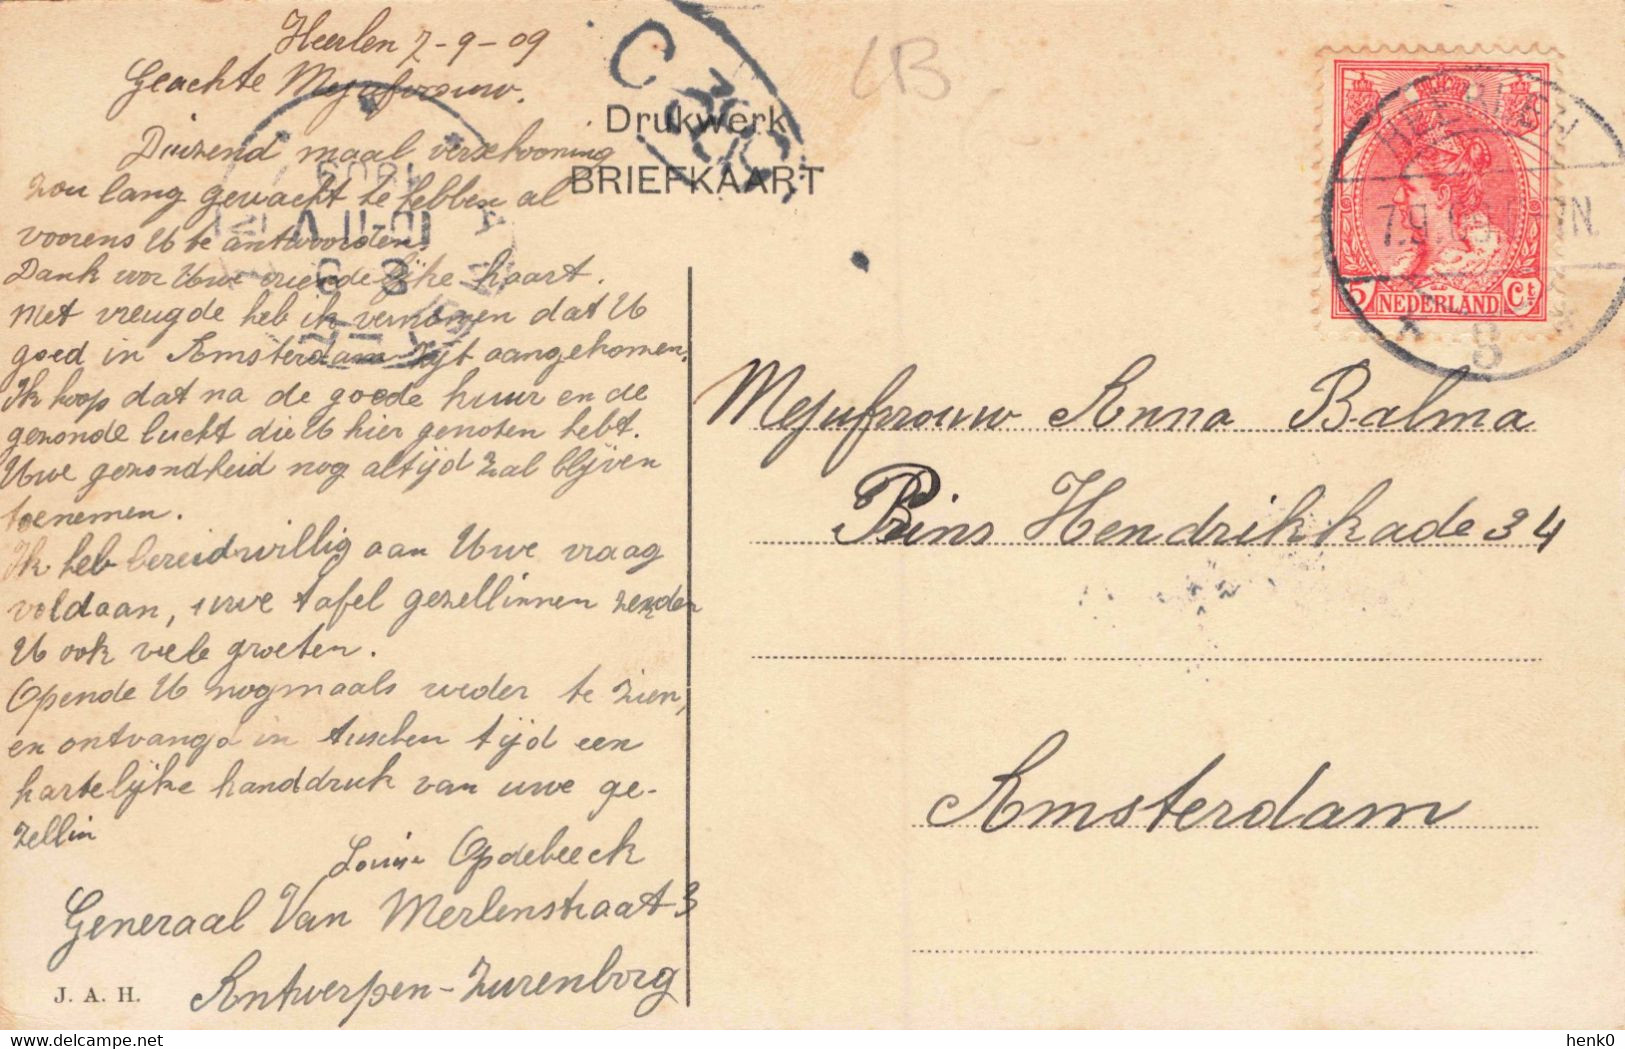 Heerlen 7-9-09
Geachte Mejufvrouw.
Duizend maal verschooning
zou lang gewacht te hebben al
voorens U te antwoorden.
Dank voor Uwe vriendelijke kaart.
Met vreugde heb ik vernomen dat U
goed in Amsterdam zijt aangekomen.
Ik hoop dat na de goede kuur en de
gezonde lucht die U hier genoten hebt.
Uwe gezondheid nog altijd zal blijven
toenemen.
Ik heb bereidwillig aan Uwe vraag
voldaan, uwe tafel gezellinnen zenden
U ook viele groeten.
Opende U nogmaals weder te zien,
en ontvangd in tuschen tijd een
hartelijke handdruk van uwe ge-
zellin
Louise Opdebeeck
Generaal Van Merlenstraat 3
Antwerpen-Zurenborg
J. A. H.
Drukwerk
BRIEFKAART
LB
HEERLEN
7.9.09 N.
8
5 NEDERLAND Ct
Mejufrouw Anna Balma
Prins Hendrikkade 34
Amsterdam
henk0